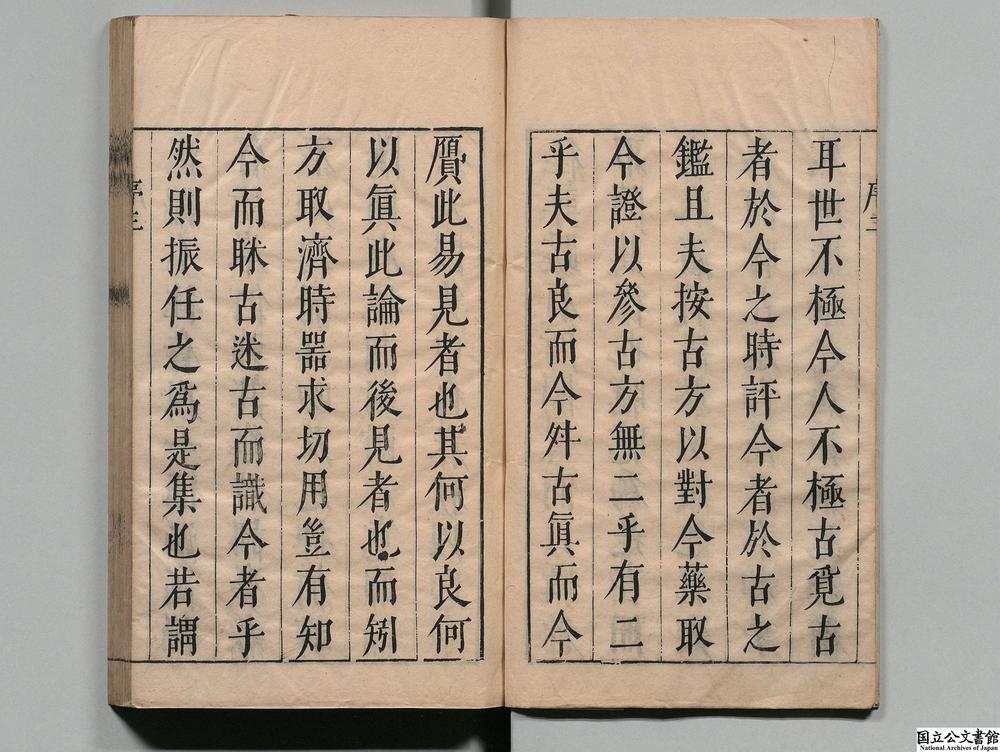 耳世不極今人不極古覓古
者於今之時評今者於古之
鑑且夫按古方以對今藥取
今證以參古方無二乎有二
乎夫古良而今舛古眞而今
贋此易見者也其何以良何
以眞此論而後見者也而矧
方取濟時噐求切用豈有知
今而眯古迷古而識今者乎
然則振任之爲是集也若謂
序三
国立公文書館
National Archives of Japan